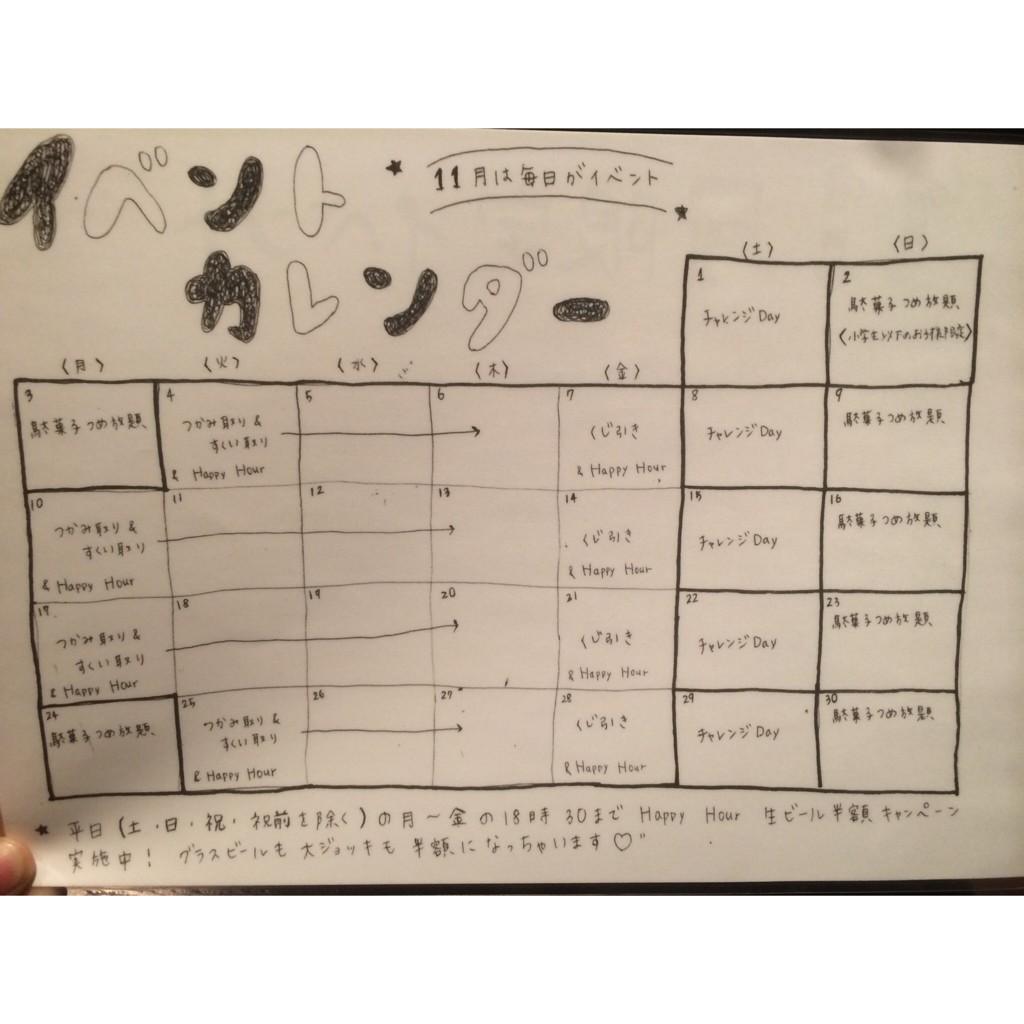 イベント
カレンダー
★ 11月は毎日がイベント ★
〈土〉 〈日〉
1 2
チャレンジDay 駄菓子つめ放題
〈小学生以下のお子様限定〉
〈月〉 〈火〉 〈水〉 〈木〉 〈金〉
3 4 5 6 7 8 9
駄菓子つめ放題 つかみ取り& くじ引き チャレンジDay 駄菓子つめ放題
すくい取り →
& Happy Hour & Happy Hour
10 11 12 13 14 15 16
つかみ取り& くじ引き チャレンジDay 駄菓子つめ放題
すくい取り →
& Happy Hour & Happy Hour
17 18 19 20 21 22 23
つかみ取り& くじ引き チャレンジDay 駄菓子つめ放題
すくい取り →
& Happy Hour & Happy Hour
24 25 26 27 28 29 30
駄菓子つめ放題 つかみ取り& くじ引き チャレンジDay 駄菓子つめ放題
すくい取り →
& Happy Hour & Happy Hour
★ 平日(土・日・祝・祝前を除く)の月〜金の18時30まで Happy Hour 生ビール半額キャンペーン
実施中! グラスビールも大ジョッキも半額になっちゃいます♡"